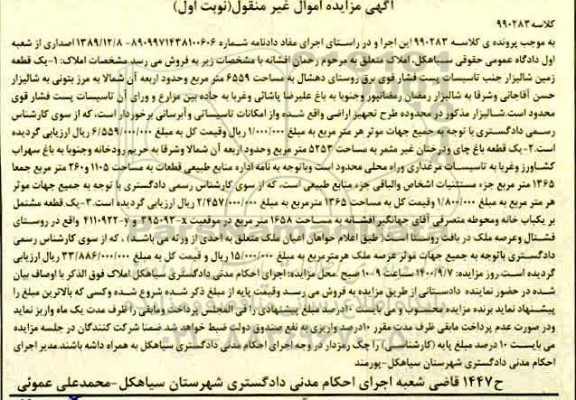 آگهی مزایده اموال غیر منقول(نوبت اول)
کلاسه ۹۹۰۲۸۳
به موجب پرونده ی کلاسه ۹۹۰۲۸۳ این اجرا و در راستای اجرای مفاد دادنامه شماره ۸۹۰۹۹۷۱۴۳۸۱۰۰۶۰۶-۱۳۸۹/۱۲/۸ اصداری از شعبه
اول دادگاه عمومی حقوقی سیاهکل، املاک متعلق به مرحوم رحمان افشانه با مشخصات زیر به فروش می رسد مشخصات املاک: ۱-یک قطعه
زمین شالیزار جنب تاسیسات پست فشار قوی برق روستای دهشال به مساحت ۶۵۵۹ متر مربع وحدود اربعه آن شمالا به مرز بتونی به شالیزار
حسن آقاجانی وشرقا به شالیزار رمضان رمضانپور وجنوبا به باغ علیرضا پاشائی وغربا به جاده بین مزارع و ورای آن تاسیسات پست فشار قوی
محدود است.شالیزار مذکور در محدوده طرح تجهیز اراضی واقع شده واز امکانات تاسیساتی وآبرسانی برخوردار است، که از سوی کارشناس
رسمی دادگستری با توجه به جمیع جهات موثر هر متر مربع به مبلغ ۱/۰۰۰/۰۰۰ ریال وقیمت کل به مبلغ ۶/۵۵۹/۰۰۰/۰۰۰ ریال ارزیابی گردیده
است.۲-یک قطعه باغ چای ودرختان غیر مثمر به مساحت ۵۲۵۳ متر مربع وحدود اربعه آن شمالا وشرقا به حریم رودخانه وجنوبا به باغ سهراب
کشاورز وغربا به تاسیسات مرغداری وراه محلی محدود است وباتوجه به نامه اداره منابع طبیعی قطعات به مساحت ۱۱۰۵ و۲۶۰ متر مربع جمعا
۱۳۶۵ متر مربع جزء مستثنیات اشخاص والباقی جزء منابع طبیعی است، که از سوی کارشناس رسمی دادگستری با توجه به جمیع جهات موثر
هر متر مربع به مبلغ ۱/۸۰۰/۰۰۰ وقیمت کل به مساحت ۱۳۶۵ مترمربع به مبلغ ۲/۴۵۷/۰۰۰/۰۰۰ ریال ارزیابی گردیده است.۳-یک قطعه مشتمل
بر یکباب خانه ومحوطه متصرفی آقای جهانگیر افشانه به مساحت ۱۶۵۸ متر مربع در موقعیت x-۳۹۵۰۹۲ و y-۴۱۱۰۹۲۲ واقع در روستای
فشتال وعرصه ملک در بافت روستا است( طبق اعلام خواهان اعیان ملک متعلق به احدی از ورثه می باشد) ، که از سوی کارشناس رسمی
دادگستری باتوجه به جمیع جهات موثر عرصه ملک هرمترمربع به مبلغ ۱۵/۰۰۰/۰۰۰ ریال و قیمت کل به مبلغ ۳۳/۸۸۶/۰۰۰/۰۰۰ ریال ارزیابی
گردیده است.روز مزایده: ۱۴۰۰/۹/۷ ساعت ۹-۱۰ صبح محل مزایده: اجرای احکام مدنی دادگستری سیاهکل املاک فوق الذکر با اوصاف بیان
شده در حضور نماینده دادستانی از طریق مزایده به فروش می رسد وقیمت پایه از مبلغ ذکر شده شروع شده وکسی که بالاترین مبلغ را
پیشنهاد نماید برنده مزایده محسوب و می بایست ۱۰درصد مبلغ پیشنهادی را فی المجلس پرداخت ومابقی را ظرف مدت یک ماه واریز نماید
ودر صورت عدم پرداخت مابقی ظرف مدت مقرر ۱۰درصد واریزی به نفع صندوق دولت ضبط خواهد شد.ضمنا شرکت کنندگان در جلسه مزایده
می بایست ۱۰ درصد مبلغ پایه (کارشناسی) را چک رمزدار در وجه اجرای احکام مدنی دادگستری سیاهکل به همراه داشته باشند.مدیر اجرای
احکام مدنی دادگستری شهرستان سیاهکل-پورمند
ح۱۴۴۷ قاضی شعبه اجرای احکام مدنی دادگستری شهرستان سیاهکل-محمدعلی عموئی